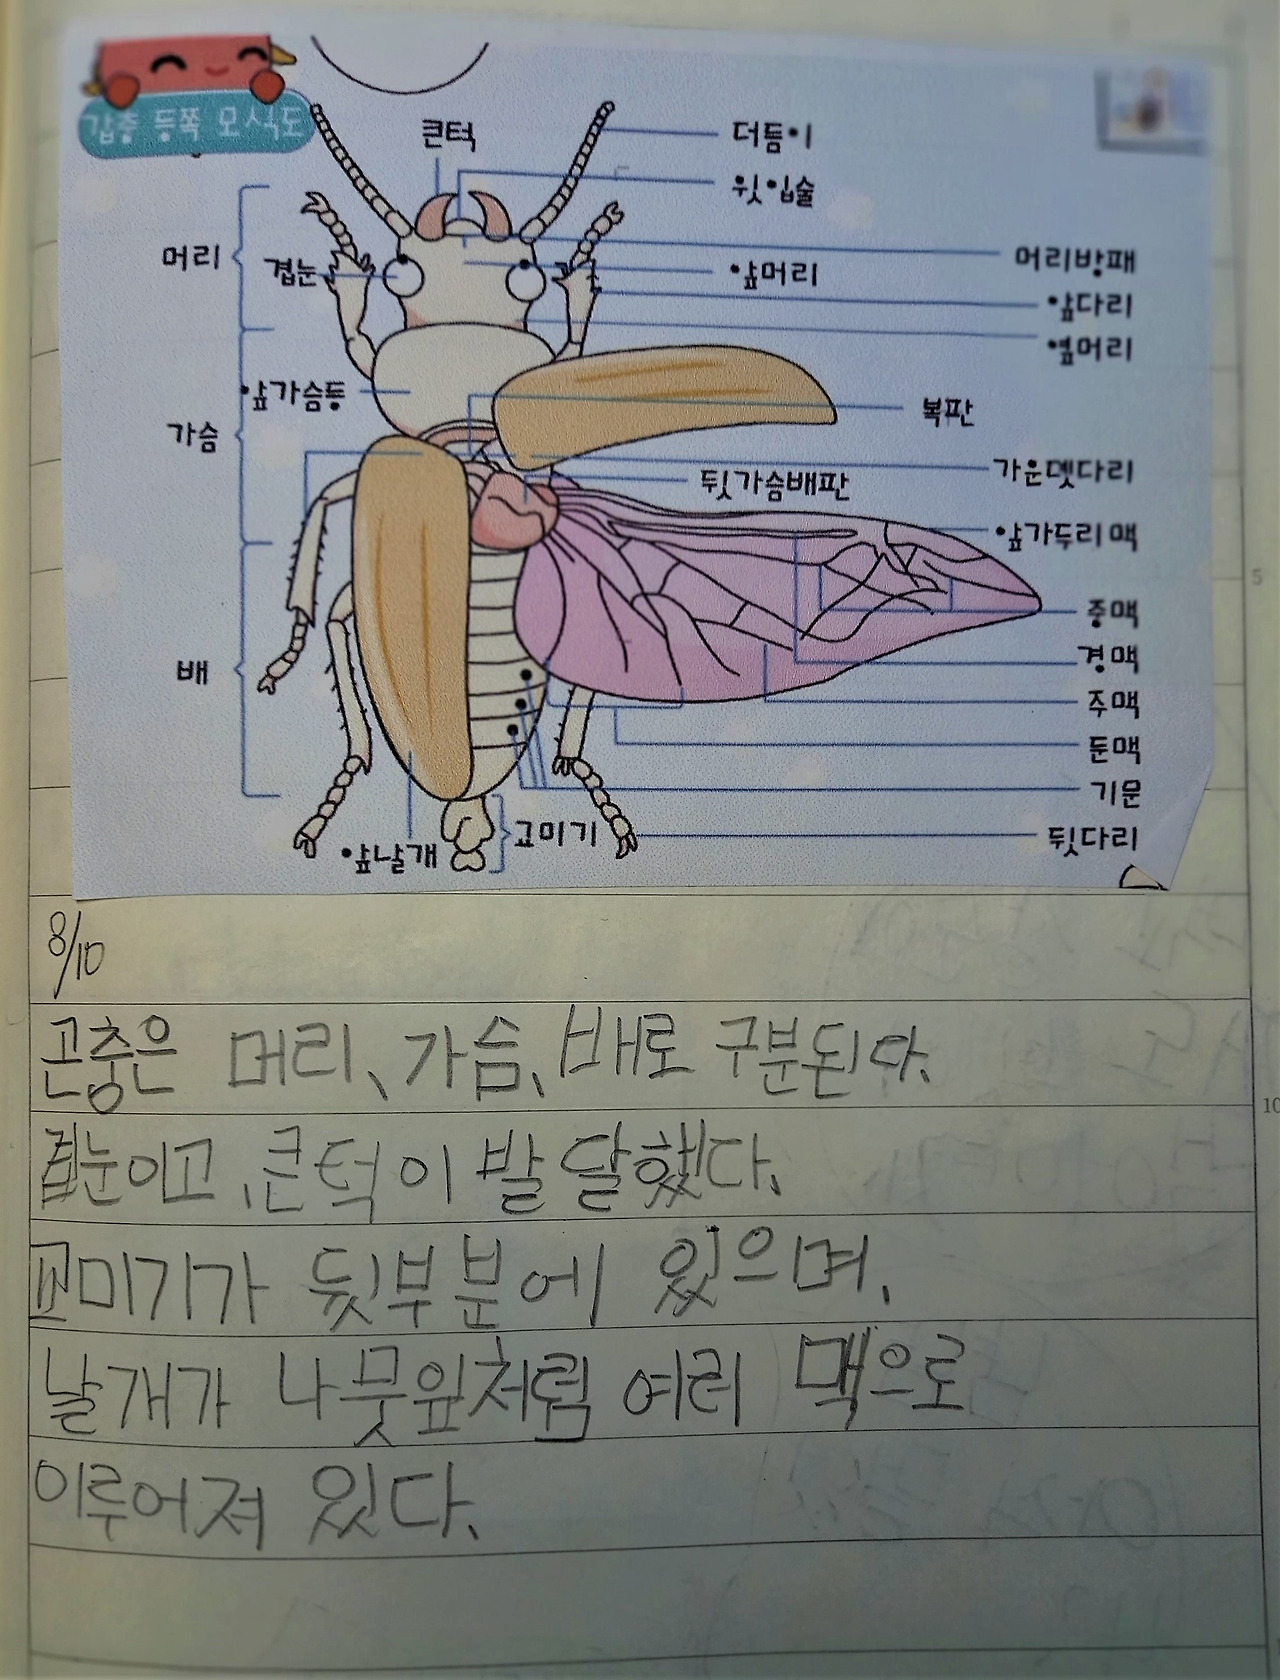 갑충 등쪽 모식도
큰턱
더듬이
윗입술
머리
겹눈
앞머리
머리방패
앞다리
옆머리
앞가슴등
가슴
복판
가운뎃다리
뒷가슴배판
앞가두리 맥
중맥
경맥
배
주맥
둔맥
기문
뒷다리
앞날개
교미기
5
8/10
곤충은 머리, 가슴, 배로 구분된다.
10
겹눈이고, 큰턱이 발달했다.
교미기가 뒷부분에 있으며,
날개가 나뭇잎처럼 여러 맥으로
이루어져 있다.